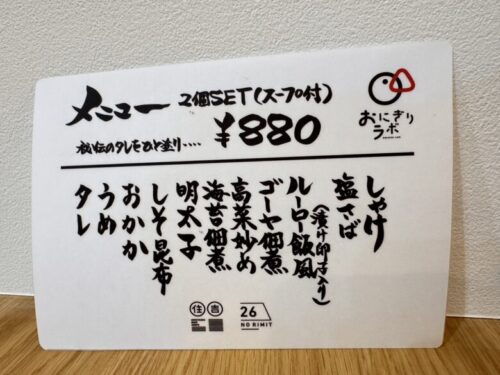 メニュー 2個SET(スープ付)
¥880
秘伝のタレをひと塗り・・・・
おにぎり
ラボ
しゃけ
塩さば
ルーロー飯風
(漬け卵入り)
ゴーヤ佃煮
高菜炒め
海苔佃煮
明太子
しそ昆布
おかか
うめ
タレ
住吉
26
NO RIMIT